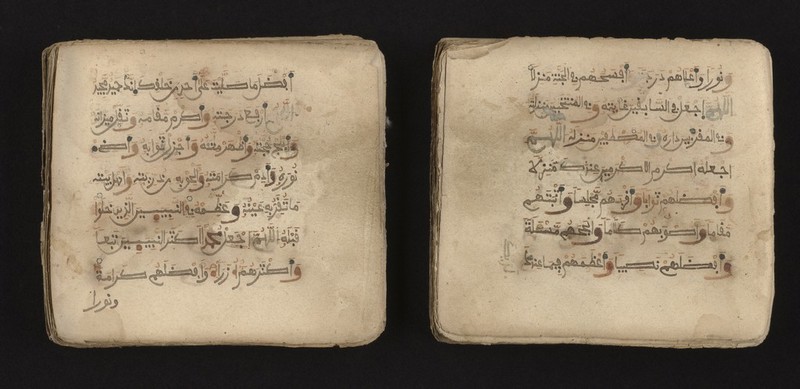 أفضل ما صليت على أحد من خلقك
اللهم أبلج درجته وأكرم مقامه وثقل ميزانه
وأبلج حجته وأظهر ملته وأجزل ثوابه وأضء
نوره وأدم كرامته وألحق به من ذريته وأهل بيته
ما تقر به عينه وعظمه في النبيين الذين خلوا
قبله اللهم اجعل محمدا أكثر النبيين تبعا
وأكثرهم أزرا وأفضلهم كرامة
ونورا
ونورا وأعلاهم درجة وأفسحهم في الجنة منزلا
اللهم اجعل في السابقين غايته وفي المنتخبين منزله
وفي المقربين داره وفي المصطفين منزله اللهم
اجعله أكرم الأكرمين عندك منزلا
وأفضلهم ثوابا وأقربهم مجلسا وأثبتهم
مقاما وأصوبهم كلاما وأنجحهم مسألة
وأفضلهم نصيبا وأعظمهم فيما عندك
لديك